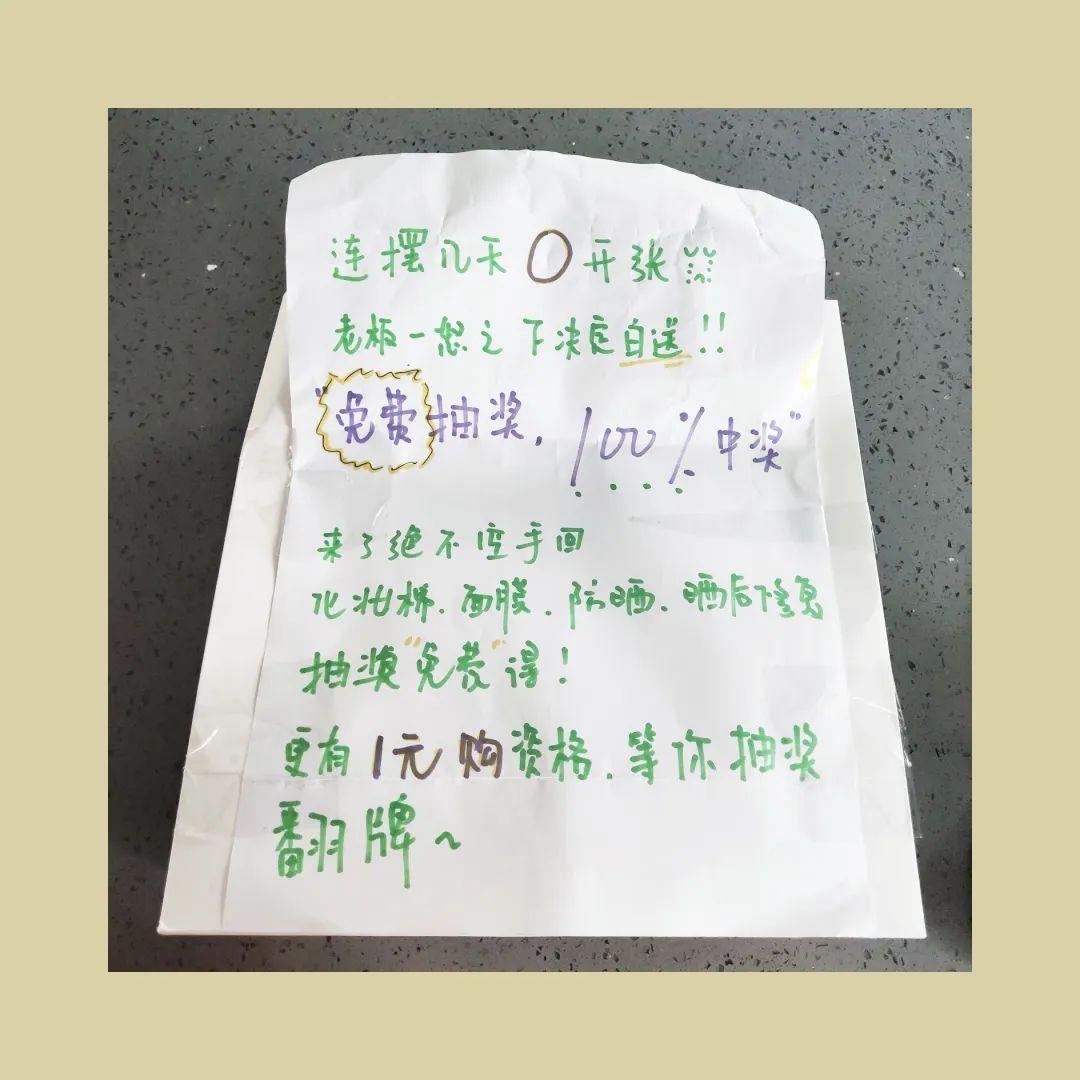 连摆几天0开张
老板一怒之下决定白送!!
"免费抽奖,100%中奖"
来了绝不空手回
化妆棉.面膜.防晒.晒后修复
抽奖"免费"得!
更有1元购资格.等你抽奖
翻牌~